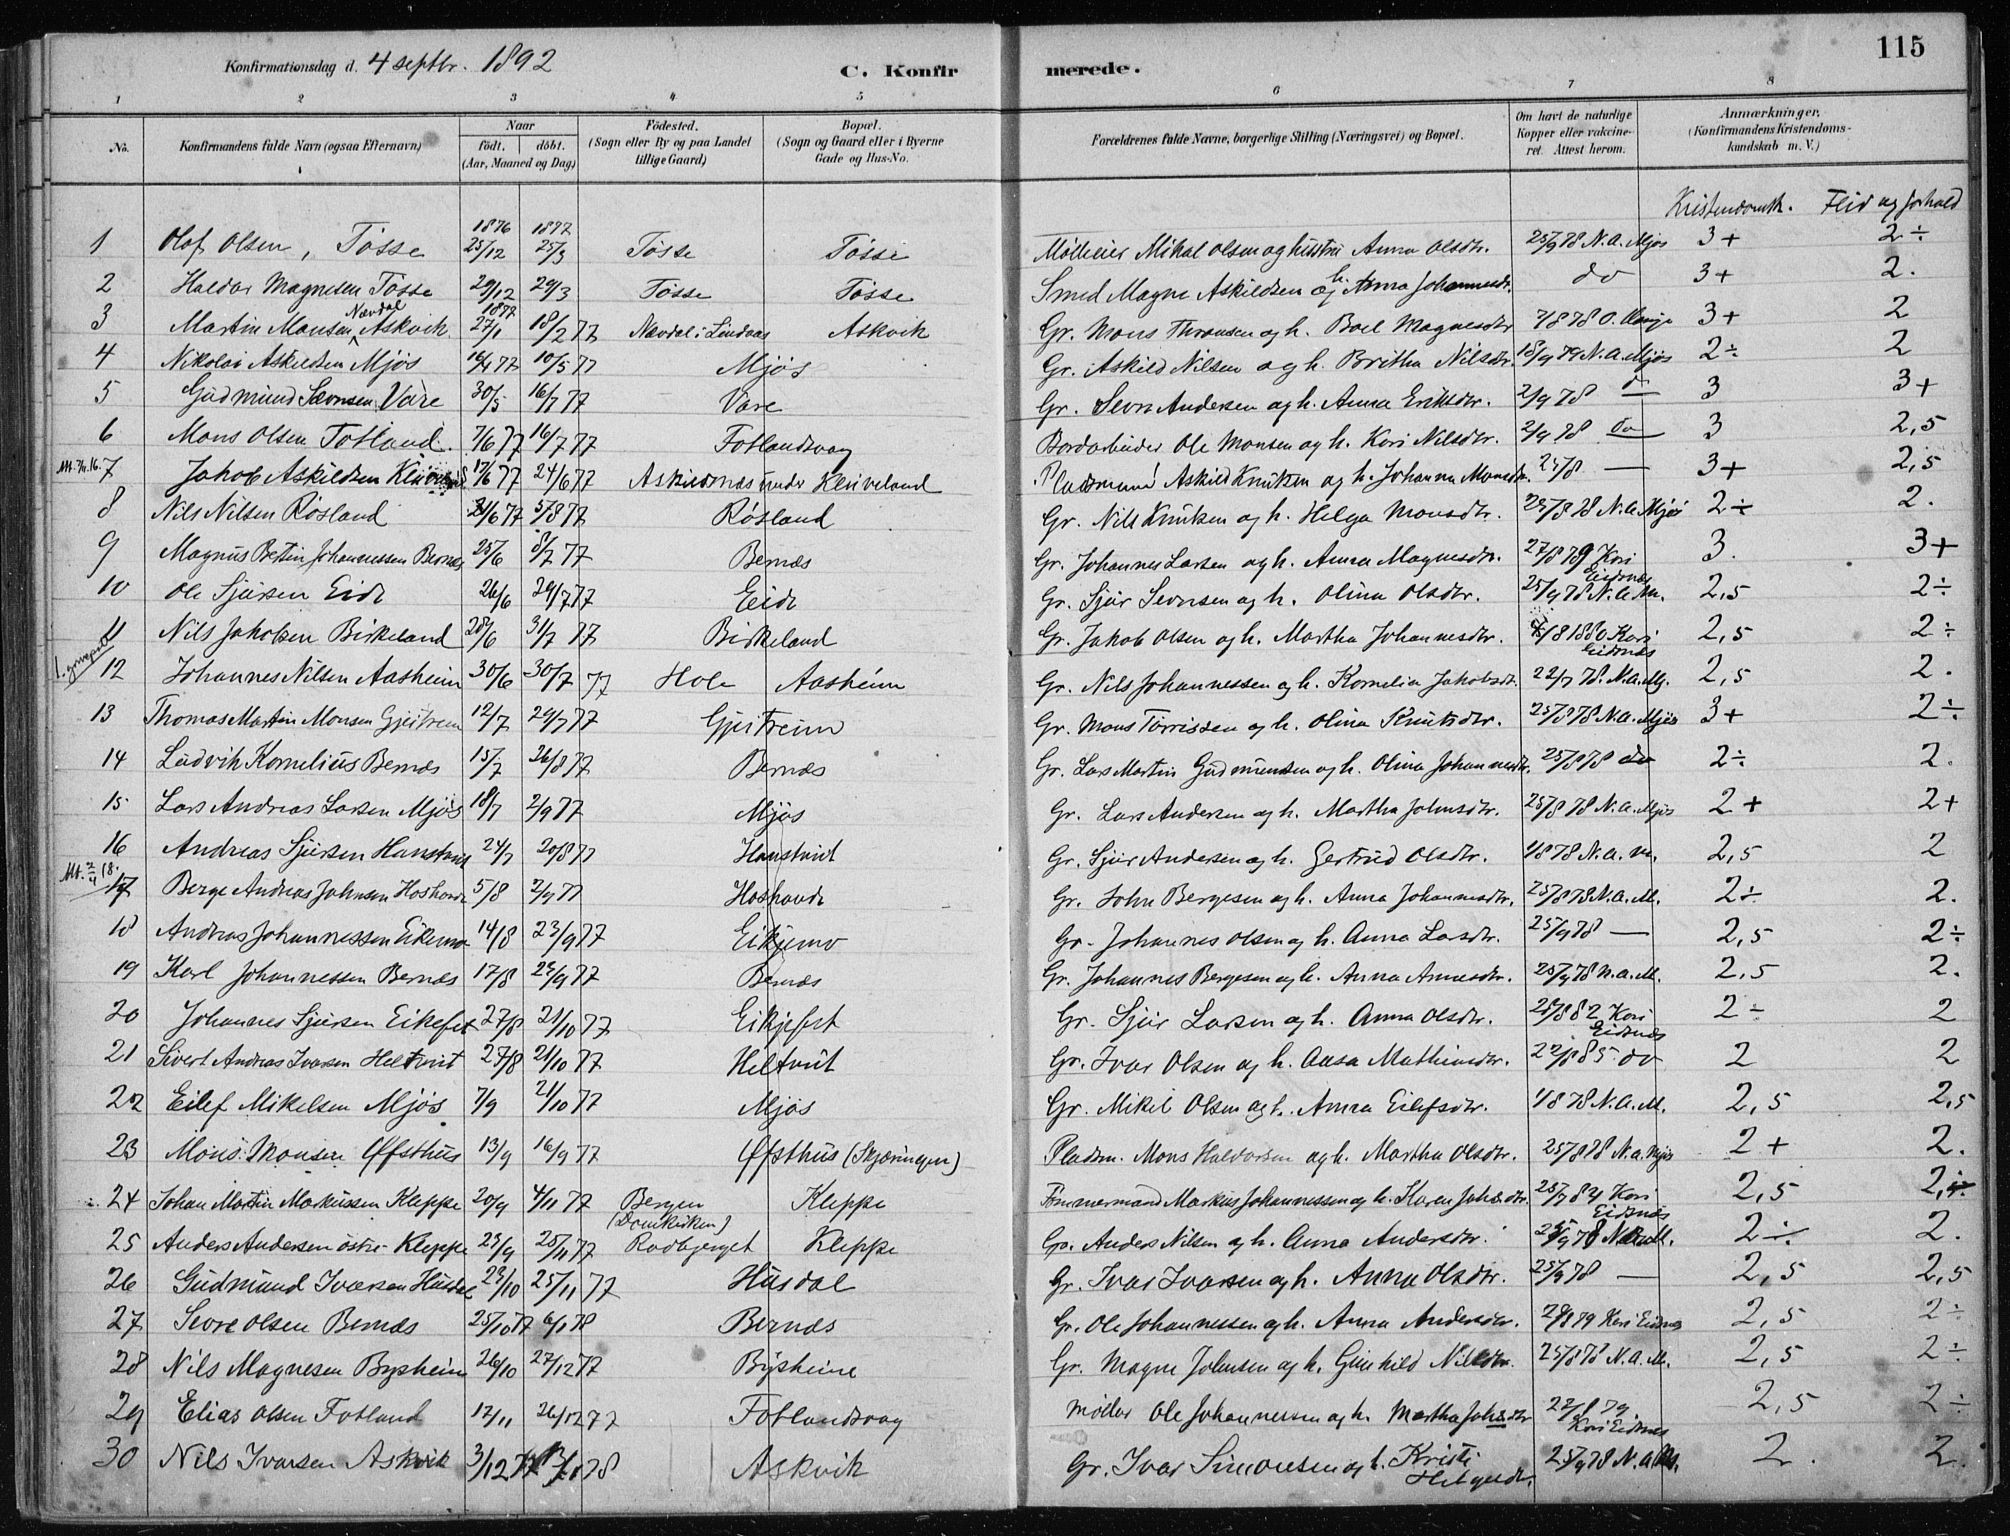 115
Konfirmationsdag d. 4 septbr. 1892
C. Konfirmerede.
1 2 3 4 5 6 7 8
No. Konfirmandens fulde Navn (ogsaa Efternavn) Naar født. døbt. (Aar, Maaned og Dag) Fødested. (Sogn eller By og paa Landet tillige Gaard) Bopæl. (Sogn og Gaard eller i Byerne Gade og Hus-No. Forældrenes fulde Navne, borgerlige Stilling (Næringsvei) og Bopæl. Om havt de naturlige Kopper eller vakcineret. Attest herom. Anmærkninger. (Konfirmandens Kristendomskundskab m. V.)
Kristendomsk. Flid og forhold
1 Olaf Olsen, Tøsse 1876 25/12 1877 25/3 Tøsse Tøsse Mølleier Mikal Olsen og hustru Anna Olsdtr. 25/9 78 N.A. Mjøs 3+ 2÷
2 Haldor Magnesen Tøsse 29/12 29/3 Tøsse Tøsse Smed Magne Askildsen og h. Anna Johannesdtr. do 3+ 2.
3 Martin Monsen Nævdal Askvik. 1877 27/1 18/2 77 Nævdal i Lindaas Askvik Gr. Mons Thronsen og h. Boel Magnesdtr 7/8 78 O. 3+ 2
4 Nikolai Askildsen Mjøs 16/4 77 10/5 77 Mjøs Gr. Askild Nilsen og h. Britha Nilsdtr. 18/9 79 N.A. Mjøs 2÷ 2
5 Gudmund Sævrnsen Vare 30/5 16/7 77 Vare Gr. Sevrn Andersen og h. Anna Eriksdtr. 2/9 78 do 3 3+
6 Mons Olsen Fotland. 7/6 77 16/7 77 Fotlandsvaag Bordarbeider Ole Monsen og h. Kari Nilsdtr. 2/9 78 do 3 2,5
7 Jakob Askildsen 17/6 77 24/6 77 Askildnæs under Kleiveland Pladsmand Askild Knutsen og h. Johanna Monsdtr. — 3+ 2,5
8 Nils Nilsen Røsland 21/6 77 5/8 77 Røsland Gr. Nils Knutsen og h. Helga Monsdtr. 25/8 78 N.A. Mjøs 2÷ 2.
9 Magnus Bertin Johannessen Bernæs 25/6 8/7 77 Bernæs Gr. Johannes Larsen og h. Anna Magnesdtr. 27/8 79 Kari Eidsnæs 3. 3+
10 Ole Sjursen Eide 26/6 29/7 77 Eide Gr. Sjur Sevrnsen og h. Olina Olsdtr. 25/9 78 N.A.M. 2,5 2÷
11 Nils Jakobsen Birkeland 28/6 31/7 77 Birkeland Gr. Jakob Olsen og h. Martha Johannesdtr. /8 1880 Kari Eidsnæs 2,5 2÷
12 Johannes Nilsen Aasheim 30/6 30/7 77 Hole Aasheim Gr. Nils Johannessen og h. Kornelia Jakobsdtr. 22/7 78. N.A. Mj. 2,5 2.
13 Thomas Martin Monsen Gjeitreim 12/7 29/7 77 Gjeitreim Gr. Mons Torrissen og h. Olina Knutsdtr. 25/8 78 N.A. Mjøs 3+ 2÷
14 Ludvik Kornelius Bernæs 15/7 26/8 77 Bernæs Gr. Lars Martin Gudmundsen og h. Olina Johannesdtr. 25/8 78 do 2÷ 2.
15 Lars Andreas Larsen Mjøs 18/7 2/9 77 Mjøs Gr. Lars Andersen og h. Martha Johnsdtr. 25/8 78 N.A. Mjøs 2+ 2+
16 Andreas Sjursen Hanstveit 24/7 20/8 77 Hanstveit Gr. Sjur Andersen og h. Gertrud Olsdtr. 1/8 78 N.A. M. 2,5 2
17 Berge Andreas Johnsen Hoshovde 5/8 2/9 77 Hoshovde Gr. John Bergesen og h. Anna Johannesdtr. 25/8 78 N.A. M. 2÷ 2.
18 Andreas Johannessen Eikemo 14/8 23/9 77 Eikjemo Gr. Johannes Olsen og h. Anna Larsdtr. 25/9 78 — 2,5 2÷
19 Karl Johannessen Bernæs 17/8 23/9 77 Bernæs Gr. Johannes Bergesen og h. Anna Annesdtr. 25/9 78 N.A.M. 2,5 2.
20 Johannes Sjursen Eikefet 27/8 21/10 77 Eikjefet Gr. Sjur Larsen og h. Anna Olsdtr. 28/8 82 Kari Eidsnæs 2÷ 2
21 Sivert Andreas Ivarsen Heltveit 27/8 21/10 77 Heltveit Gr. Ivar Olsen og h. Aasa Mathiasdtr. 22/8 85 do 2 2
22 Eilef Mikelsen Mjøs 7/9 21/10 77 Mjøs Gr. Mikel Olsen og h. Anna Eilefsdtr. 1/8 78 N.A. M. 2,5 2,5
23 Mons Monsen Øfsthus 13/9 16/9 77 Øfsthus (Skjæringen) Pladsm. Mons Haldorsen og h. Martha Olsdtr. 25/8 78 N.A. Mjøs 2+ 2.
24 Johan Martin Markussen Kleppe 20/9 4/11 77 Bergen (Domkirken) Kleppe Tømmermand Markus Johannessen og h. Karen Johsdtr. 25/7 84 Kari Eidsnæs 2,5 2,
25 Anders Andersen østre Kleppe 23/9 25/11 77 Rødbjerget Kleppe Gr. Anders Nilsen og h. Anna Andersdtr. 25/9 78 N.A.M. 2÷ 2.
26 Gudmund Ivarsen Husdal 23/10 25/11 77 Husdal Gr. Ivar Ivarsen og h. Anna Olsdtr. 25/9 78 — 2,5 2,5
27 Sevre Olsen Bernæs 25/10 77 6/1 78 Bernæs Gr. Ole Johannessen og h. Anna Andersdtr. 28/8 79 Kari Eidsnæs 2,5 2÷
28 Nils Magnesen Bysheim 26/10 27/12 77 Bysheim Gr. Magne Johnsen og h. Gunhild Nilsdtr. 25/8 78 N.A.M. 2,5 2÷
29 Elias Olsen Fotland 12/11 26/12 77 Fotlandsvaag Møller Ole Johannessen og h. Martha Johsdtr 27/8 79 Kari Eidsnæs 2,5 2÷
30 Nils Ivarsen Askvik 3/12 77 13/1 78 Askvik Gr. Ivar Simonsen og h. Kristi Helgesdtr. 25/9 78 N.A.M. 2. 2.